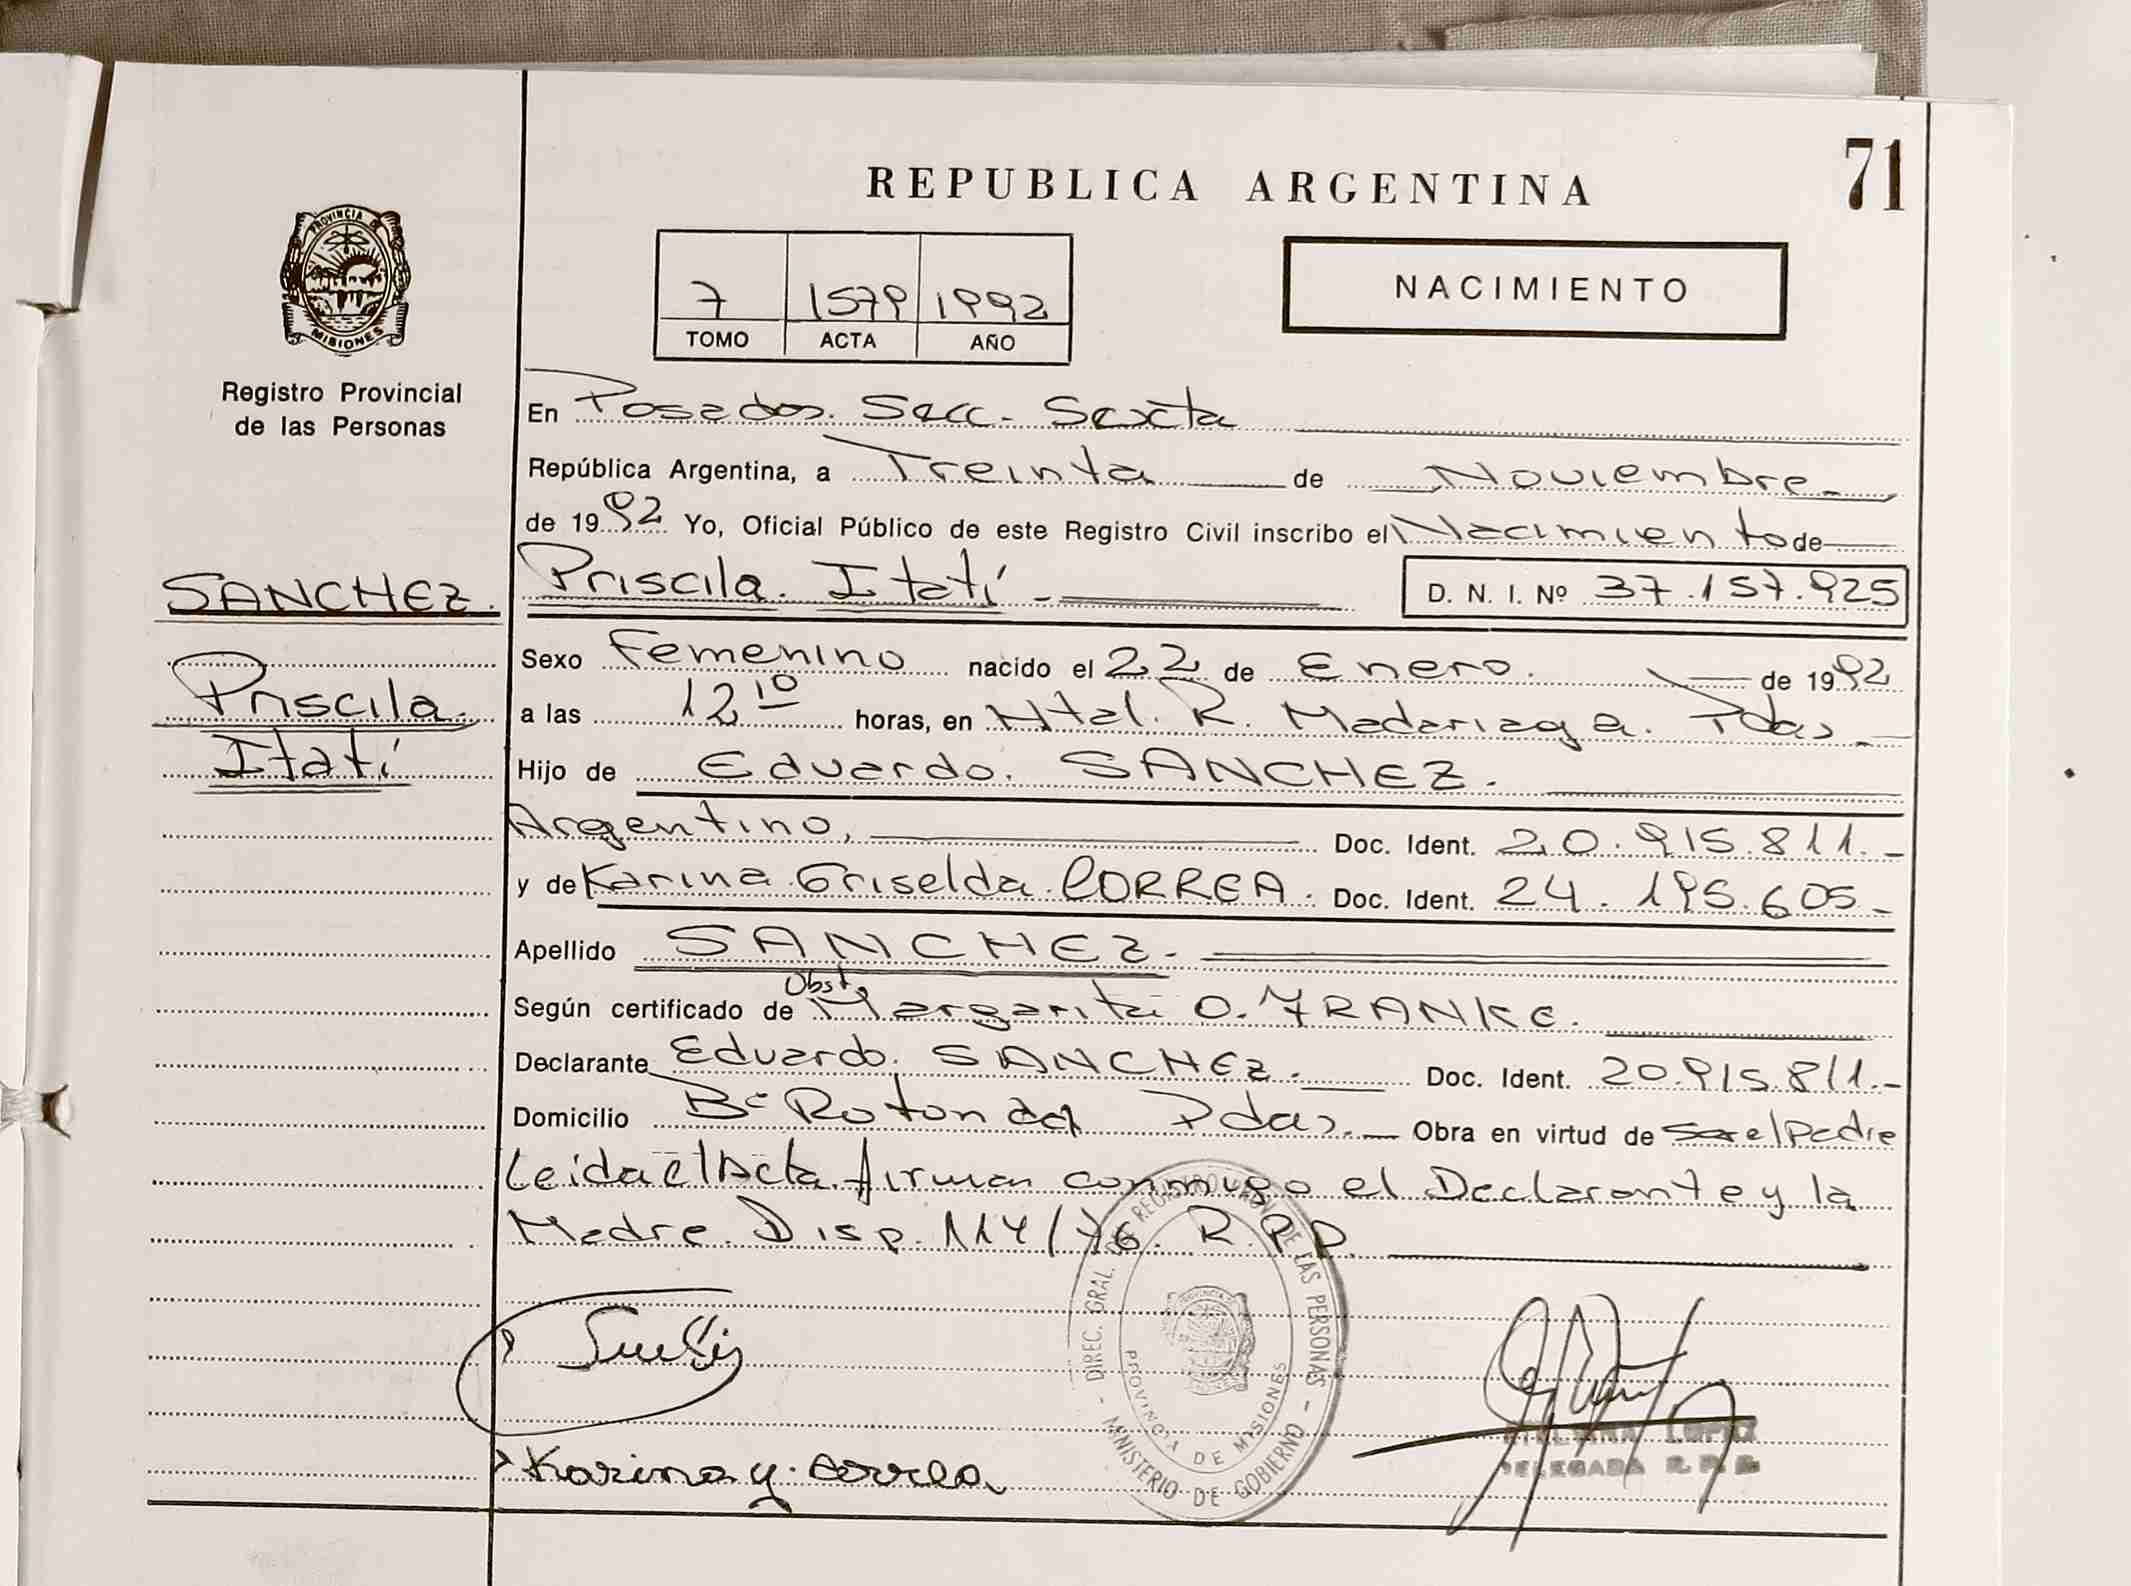 REPUBLICA ARGENTINA
71
PROVINCIA DE
MISIONES
Registro Provincial
de las Personas
7 1579 1992
TOMO ACTA AÑO
NACIMIENTO
En Posadas. Secc. Sexta
República Argentina, a Treinta de Noviembre
de 1992 Yo, Oficial Público de este Registro Civil inscribo el Nacimiento de
SANCHEZ.
Priscila.
Itatí
Priscila. Itatí - D. N. I. Nº 37.157.925
Sexo Femenino nacido el 22 de Enero. de 1992
a las 12 10 horas, en Htal. R. Madariaga. Pdas
Hijo de Eduardo. SANCHEZ.
Argentino, Doc. Ident. 20.915.811.-
y de Karina Griselda CORREA. Doc. Ident. 24.195.605-
Apellido SANCHEZ.
Obst.
Según certificado de Margarita O. FRANKE.
Declarante Eduardo. SANCHEZ. Doc. Ident. 20.915.811.-
Domicilio Bº Rotonda Pdas. Obra en virtud de Ser el Padre
Leida el Acta firman conmigo el Declarante y la
Madre. Disp. 114/76. R.P.P.
Karina y. correa
- DIREC. GRAL. DE REGISTRO DE LAS PERSONAS -
MINISTERIO DE GOBIERNO
PROVINCIA DE MISIONES
LOPEZ
DELEGADA R. P. P.